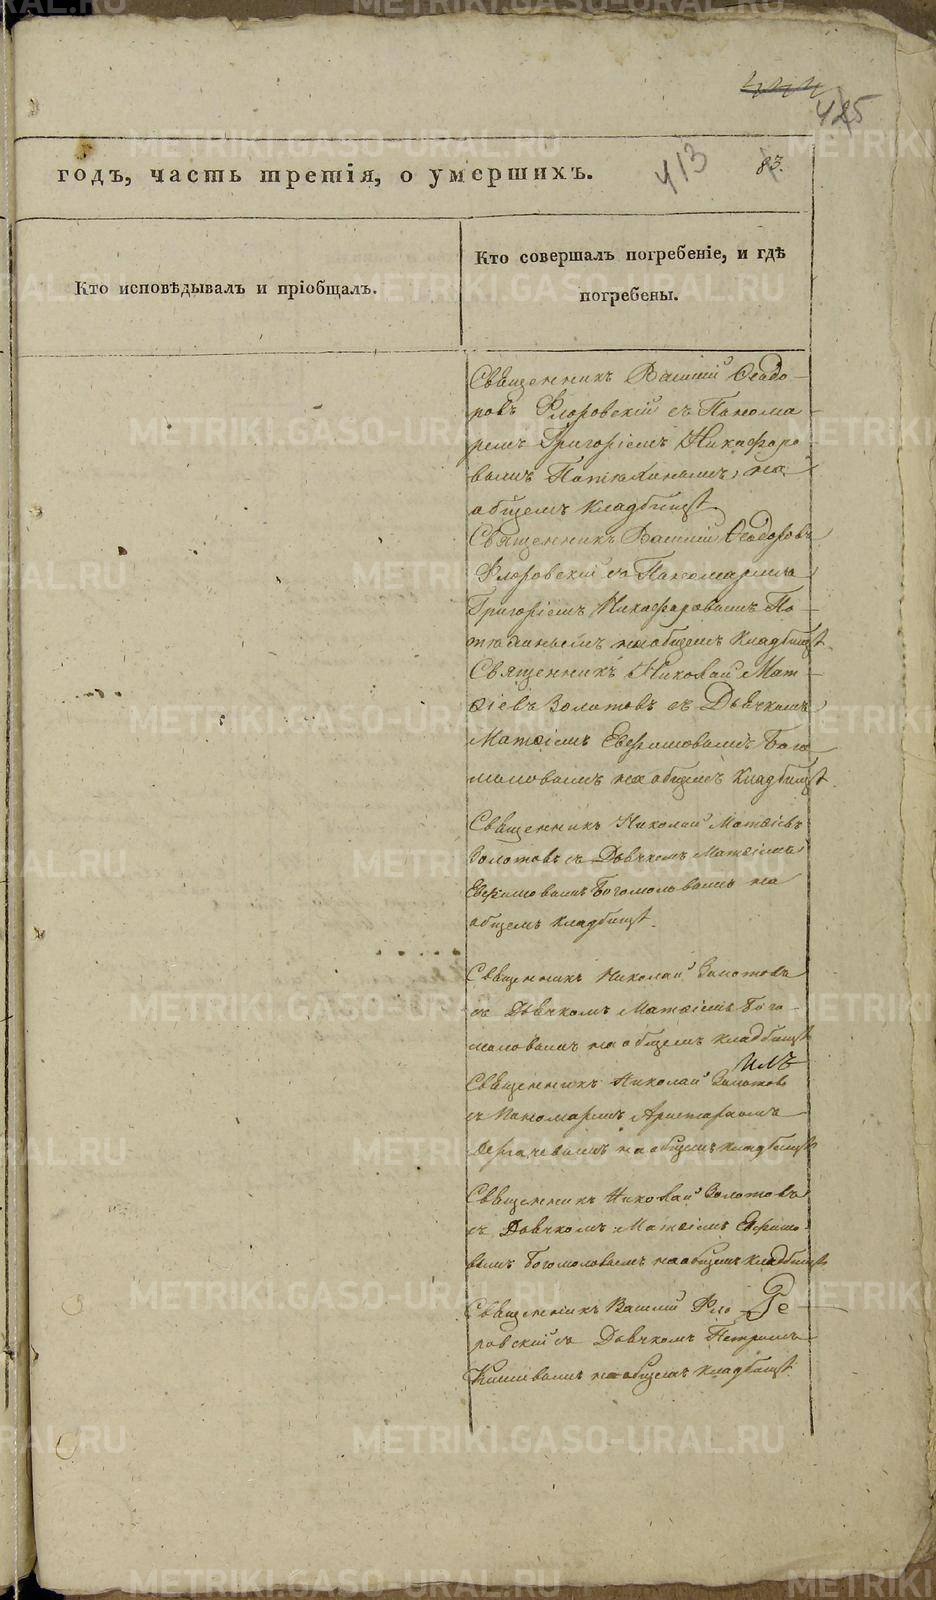 425
413
83.
годъ, часть третія, о умершихъ.
Кто исповѣдывалъ и пріобщалъ.
Кто совершалъ погребеніе, и гдѣ
погребены.
Священникъ Василій Ѳеодо-
ровъ Флоровскій съ Панома-
ремъ Григоріемъ Никафоро-
вымъ на
общемъ кладбищѣ
Священникъ Василій Ѳеодоровъ
Флоровскій съ Паномаремъ
Григоріемъ Никафоровымъ По-
на общемъ кладбищѣ.
Священникъ Николай Мат-
ѳіевъ Золотовъ съ Дьячкомъ
Матѳіемъ Бого
моловымъ на общемъ кладбищѣ.
Священникъ Николай Матѳіевъ
Золотовъ съ Дьячкомъ Матѳіемъ
Богомоловымъ на
общемъ кладбищѣ.
Священникъ Николай Золотовъ
съ Дьячкомъ Матѳіемъ Бого-
моловымъ на общемъ кладбищѣ
Священникъ Николай Золотовъ
съ Паномаремъ Аристархомъ
Дергачевымъ на общемъ кладбищѣ
Священникъ Николай Золотовъ
съ Дьячкомъ Матѳіемъ
вымъ Богомоловымъ на общемъ кладбищѣ
Священникъ Василій Фло-
ровскій съ Дьячкомъ Петромъ
на общемъ кладбищѣ.
METRIKI.GASO-URAL.RU